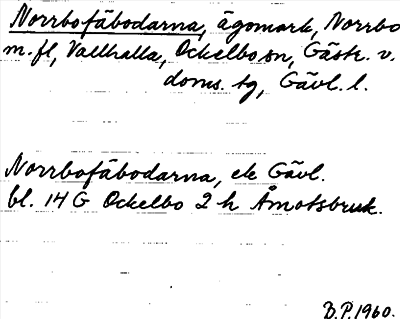 Norrbofäbodarna, ägomark, Norrbo
m. fl, Vallhalla, Ockelbo sn, Gästr. v.
doms. tg, Gävl. l.
Norrbofäbodarna, ek Gävl.
bl. 14 G Ockelbo 2 h Åmotsbruk.
B.P. 1960.